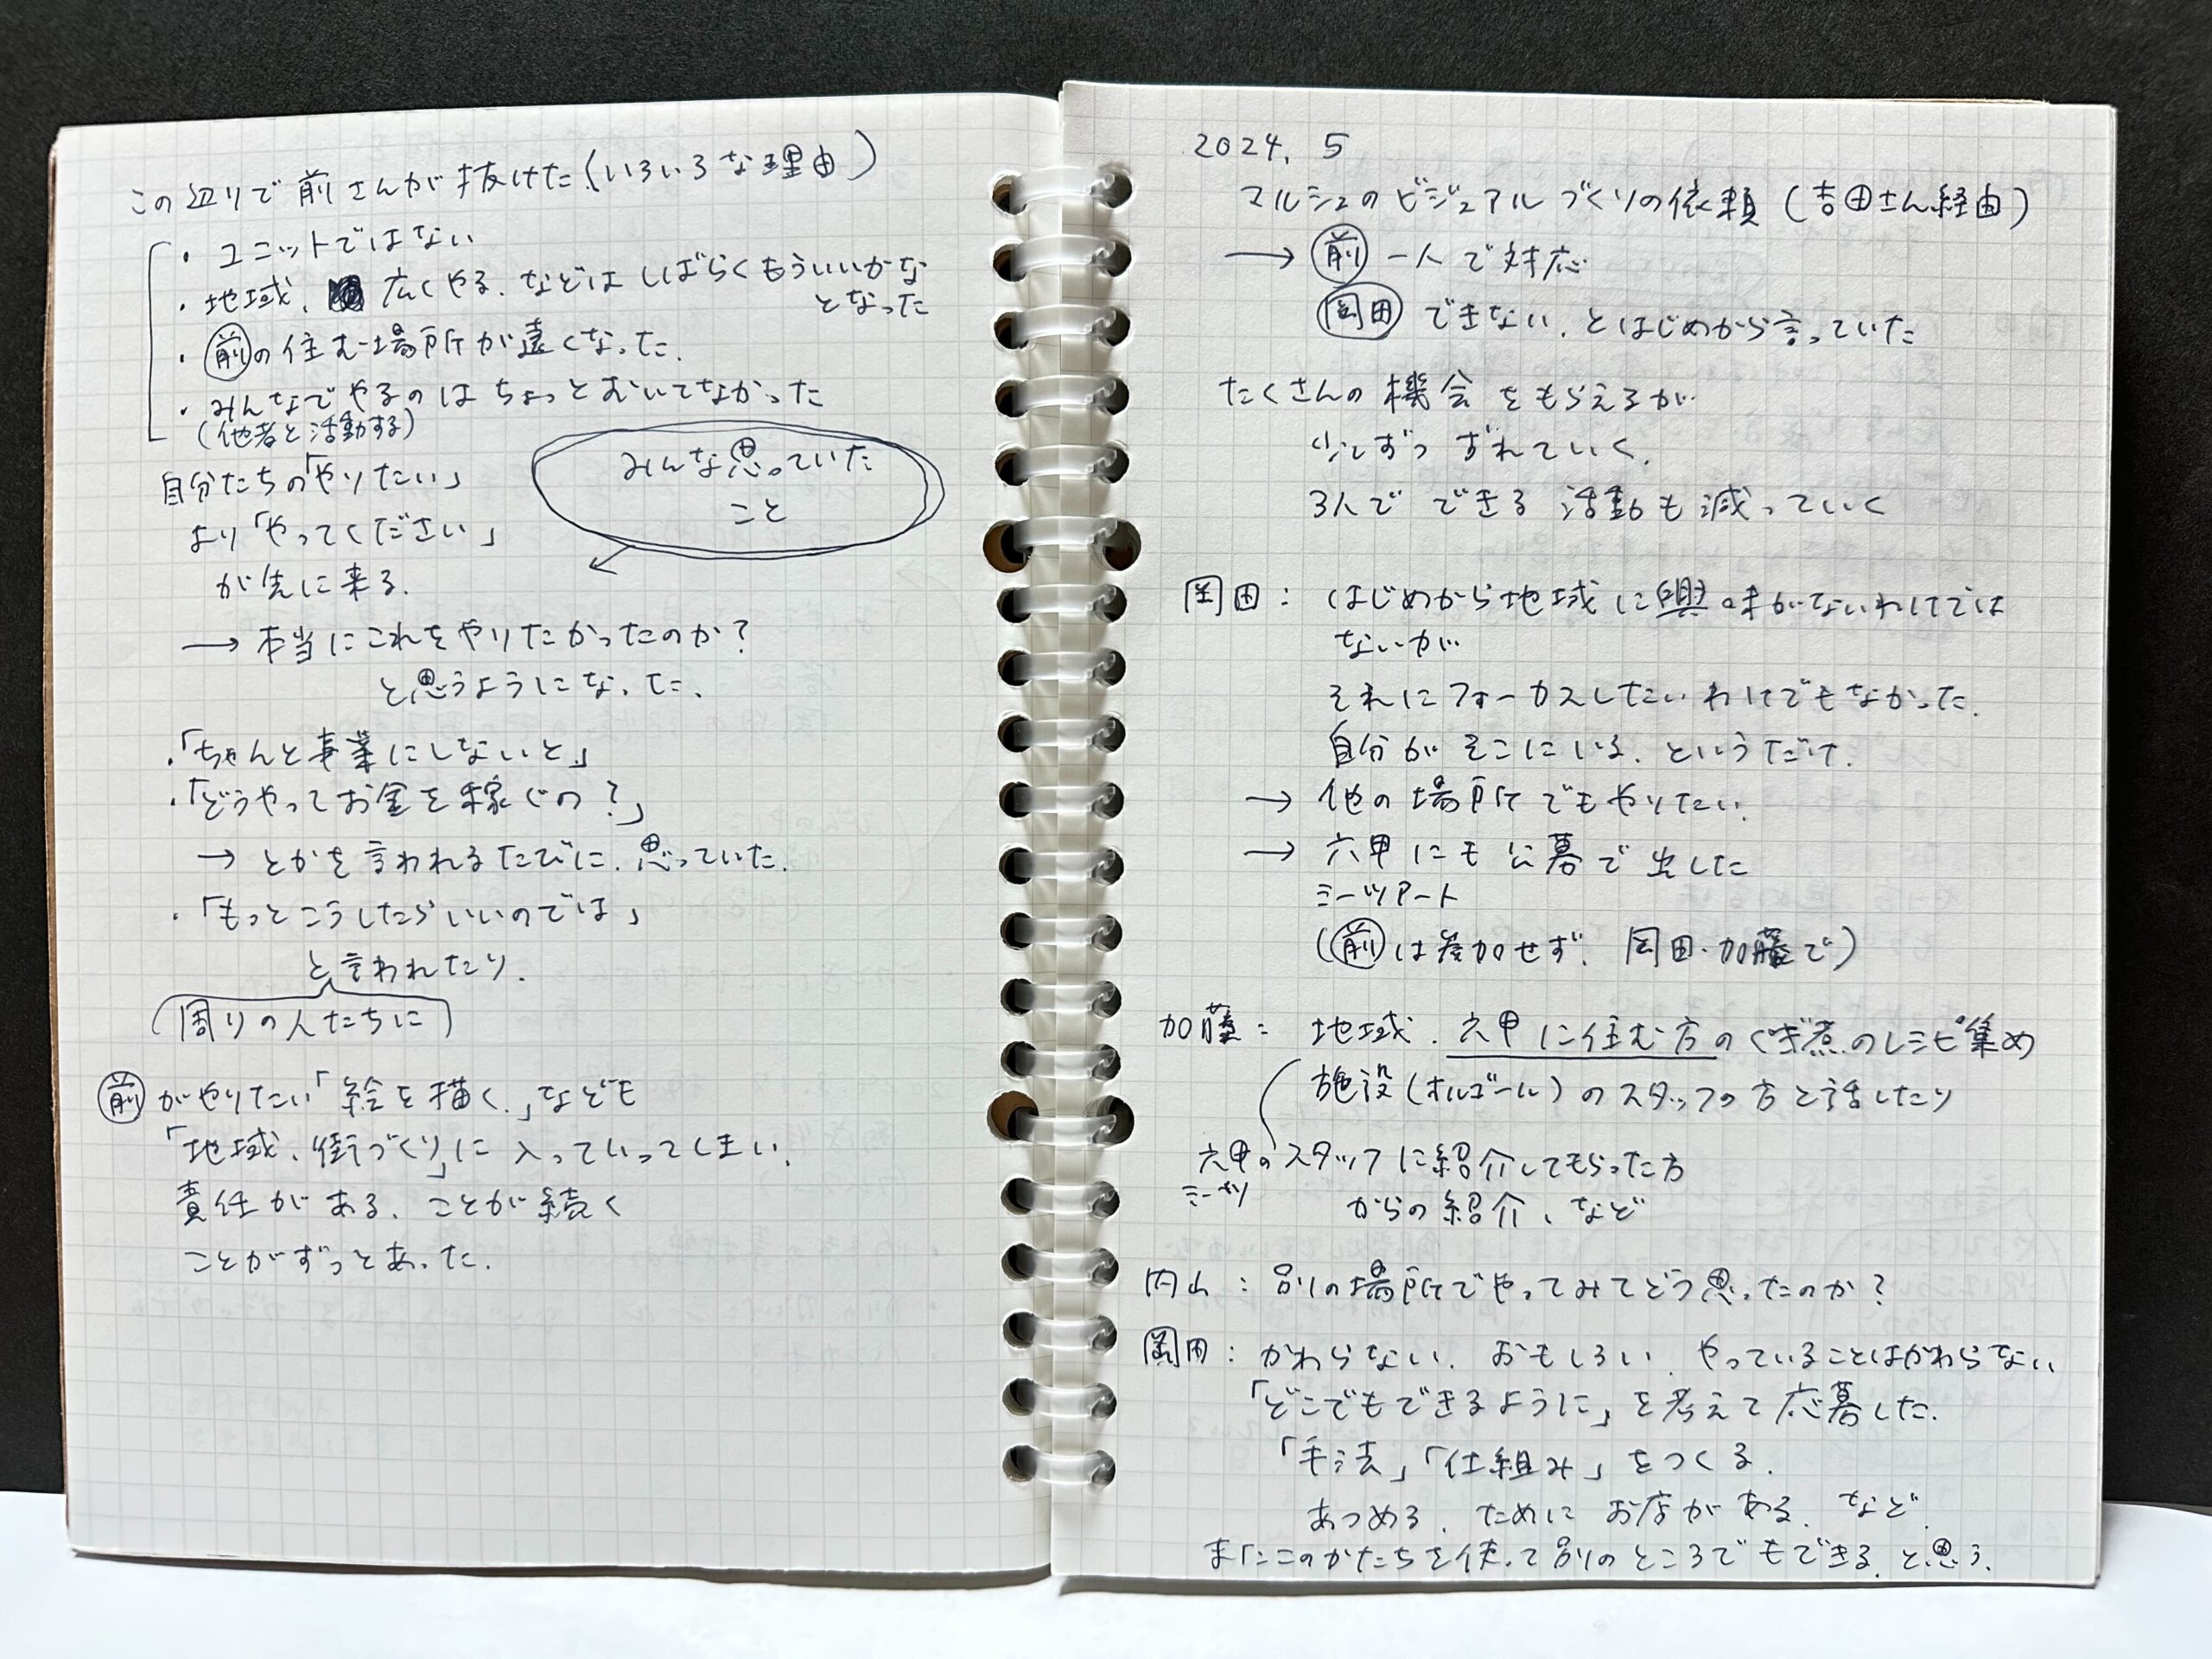 この辺りで前さんが抜けた。(いろいろな理由)
・ユニットではない
・地域、広くやる、などはしばらくもういいかな
となった
・前の住む場所が遠くなった。
・みんなでやるのはちょっとむいてなかった
(他者と活動する)
みんな思っていた
こと
自分たちの「やりたい」
より「やってください」
が先に来る。
→ 本当にこれをやりたかったのか?
と思うようになった。
・「ちゃんと事業にしないと」
・「どうやってお金を稼ぐの?」
→ とかを言われるたびに、思っていた。
・「もっとこうしたらいいのでは」
と言われたり。
(周りの人たちに)
前がやりたい「絵を描く。」なども
「地域、街づくり」に入っていってしまい、
責任がある、ことが続く
ことがずっとあった。
2024. 5
マルシェのビジュアルづくりの依頼(吉田さん経由)
→ 前 一人で対応
岡田 できない、とはじめから言っていた
たくさんの機会をもらえるが
少しずつずれていく、
3人でできる活動も減っていく
岡田: はじめから地域に興味がないわけでは
ないが
それにフォーカスしたいわけでもなかった。
自分がそこにいる、というだけ。
→ 他の場所でもやりたい。
→ 六甲にも公募で出した
ミーツアート
(前は参加せず、岡田・加藤で)
加藤: 地域、六甲に住む方のくぎ煮のレシピ集め
施設(オルゴール)のスタッフの方と話したり
六甲のスタッフに紹介してもらった方
ミーツ
からの紹介、など
内山: 別の場所でやってみてどう思ったのか?
岡田: かわらない、おもしろい、やっていることはかわらない
「どこでもできるように」を考えて応募した。
「手法」「仕組み」をつくる。
あつめる、ためにお店がある、など。
またこのかたちを使って別のところでもできる、と思う。